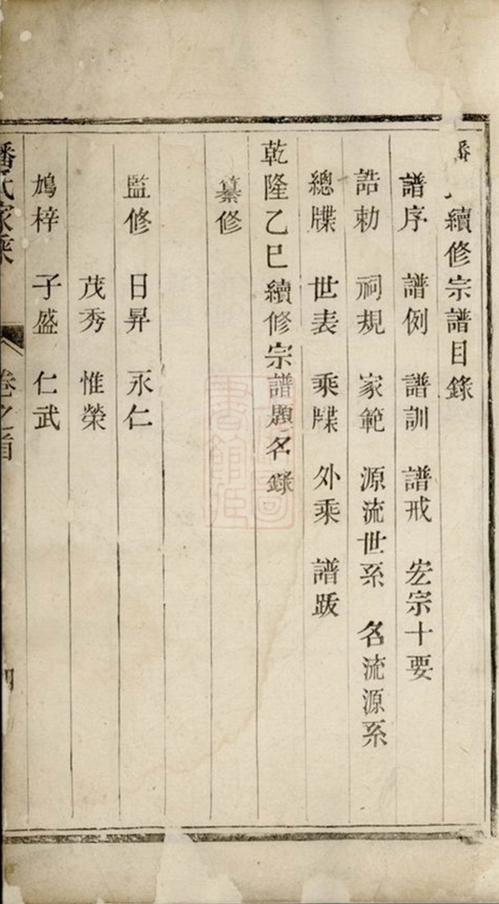 續修宗譜目錄
譜序 譜例 譜訓 譜戒 宏宗十要
誥勅 祠規 家範 源流世系 名流源系
總牒 世表 乘牒 外乘 譜跋
乾隆乙巳續修宗譜題名錄
纂修
監修 日昇 永仁
茂秀 惟榮
鳩梓 子盛 仁武
潘氏家乘 卷之首 四